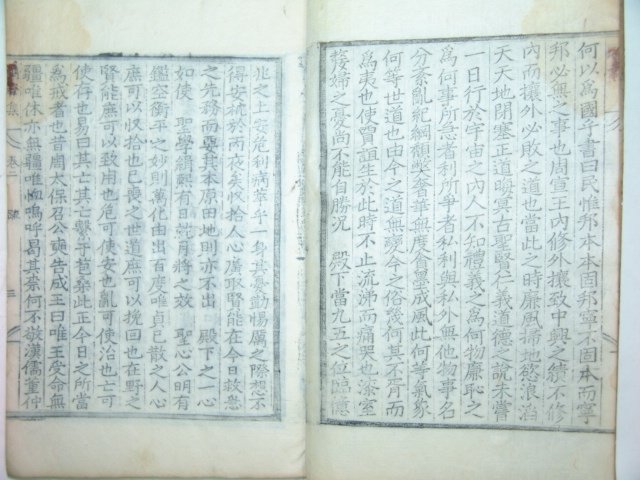 何以爲國乎書曰民惟邦本本固邦寧不固本而寧
邦必無之事也周宣王內修外攘致中興之績不修
內而攘外必敗之道也當此之時廉風掃地慾浪滔
天天地閉塞正道晦冥古聖賢仁義道德之說未嘗
一日行於宇宙之內人不知禮義之爲何物廉恥之
爲何事所急者利所爭者私利與私外無他物事名
分紊亂紀綱頹奬奢華無度貪墨成風此何等氣象
何等世道也由今之道無變今之俗幾何其不胥而
爲夷也使賈誼生於此時不止流涕而痛哭也漆室
嫠婦之憂尚不能自勝況 殿下當九五之位臨億
兆之上安危利病萃乎一身其憂勤惕厲之際想不
得安枕於丙夜矣收拾人心廣取賢能在今日救急
之先務而要其本原田地則亦不出 殿下之一心
如使 聖學緝熙有日就月將之效 聖心公明有
鑑空衡平之妙則萬化由出百度唯貞已散之人心
庶可以收拾也已喪之世道庶可以挽回也在野之
賢能庶可以致用也危可使安也亂可使治也亡可
使存也易曰其亡其亡繫于苞桑此正今日之所當
爲戒者也昔周太保召公奭告成王曰唯王受命無
疆唯休亦無疆唯恤嗚呼曷其柰何不敬漢儒董仲
集 卷二 疏 三